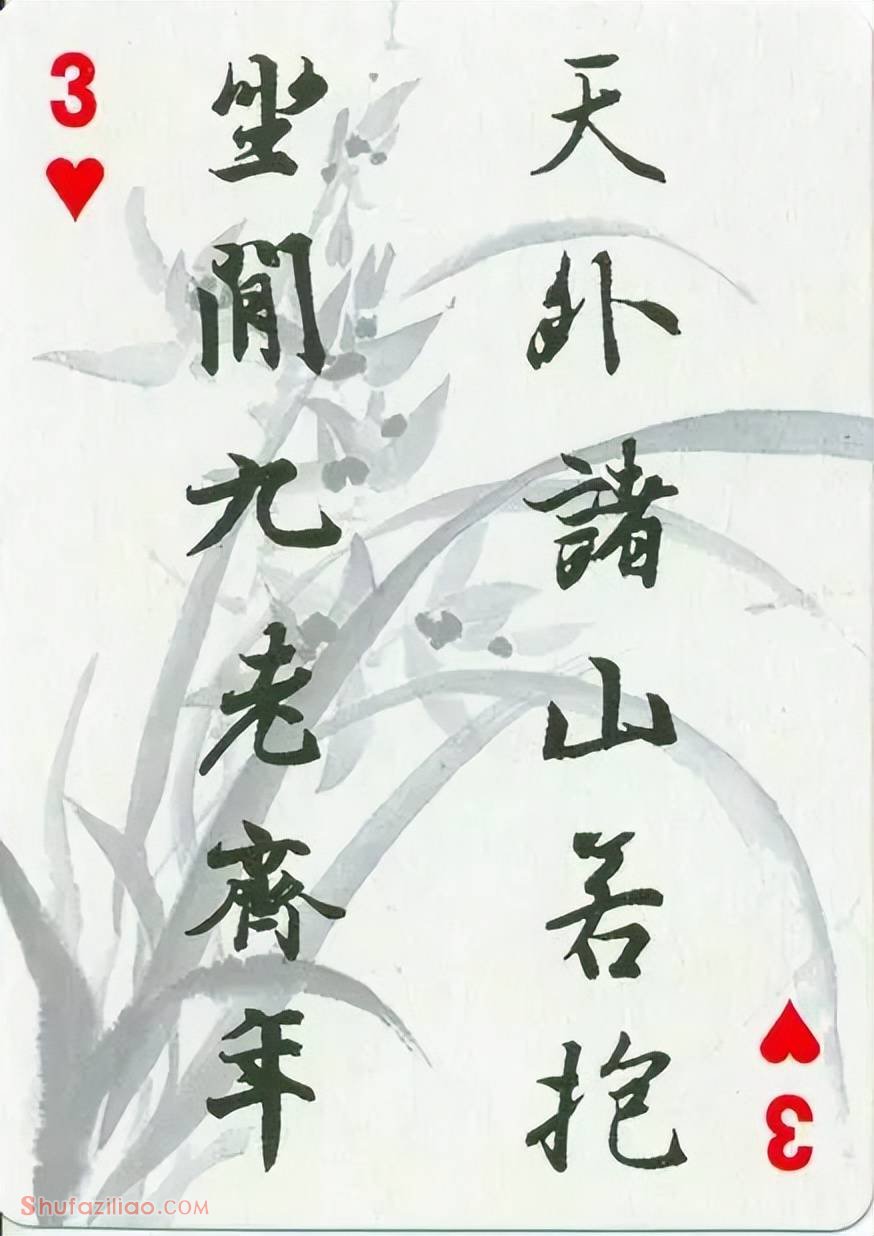 3
天外諸山若抱
坐間九老齊年
3
Shufaziliao.COM